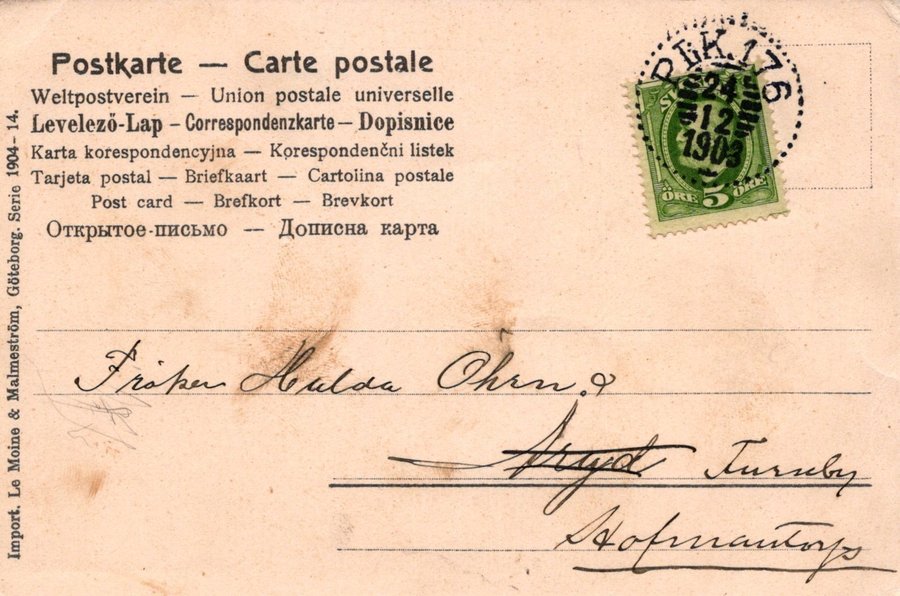 Postkarte — Carte postale
Weltpostverein — Union postale universelle
Levelező-Lap – Correspondenzkarte – Dopisnice
Karta korespondencyjna — Korespondenčni listek
Tarjeta postal — Briefkaart — Cartolina postale
Post card — Brefkort — Brevkort
Открытое-письмо — Дописна карта
PLK. 176
24
12
1903
5
ÖRE ÖRE
Import. Le Moine & Malmeström, Göteborg. Serie 1904 - 14.
Fröken Hulda Öhrn
Aryd Furuby
Hofmantorp